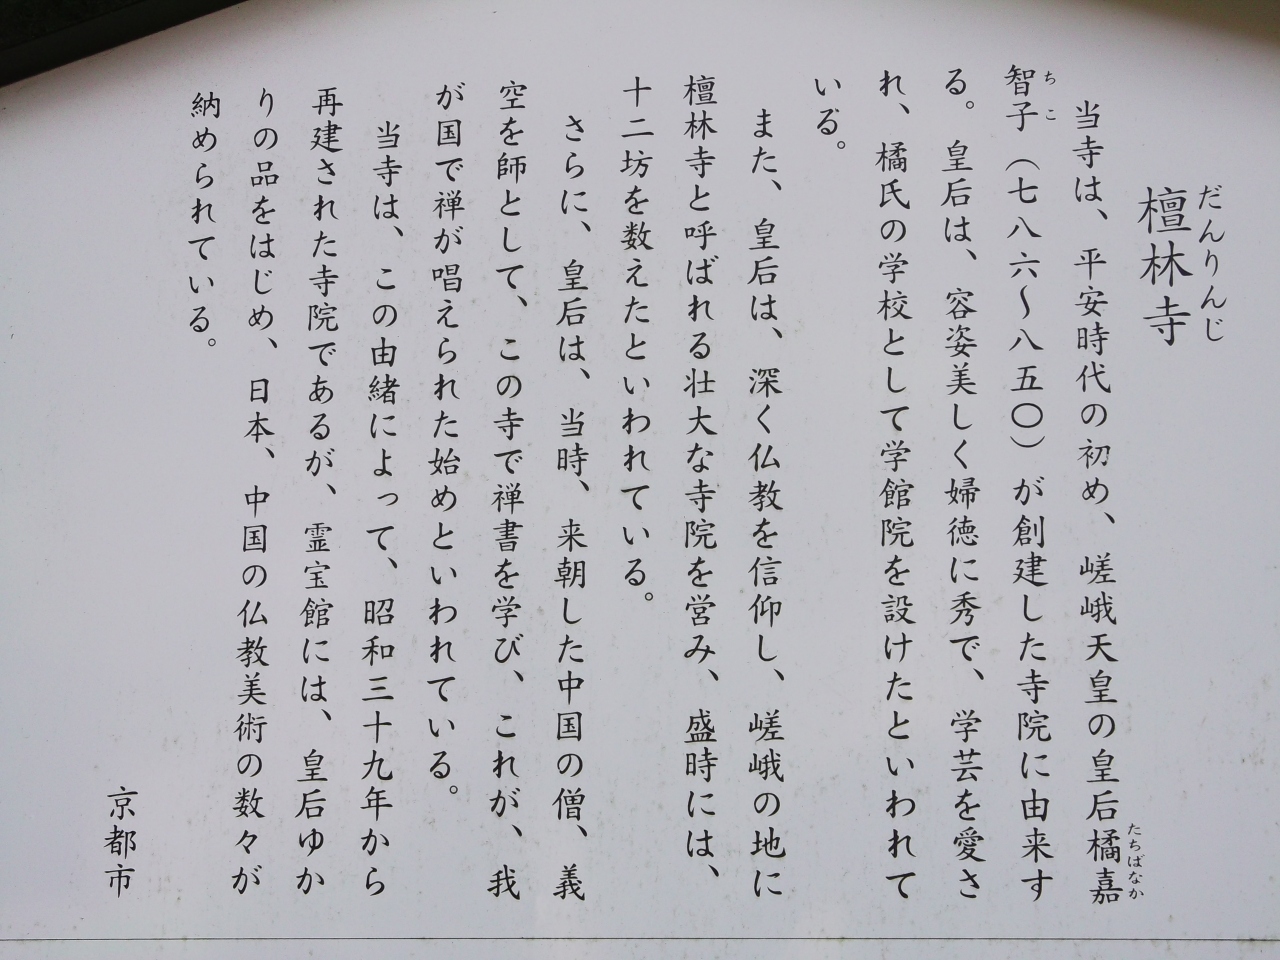 だんりんじ
檀林寺
当寺は、平安時代の初め、嵯峨天皇の皇后橘嘉
たちばなか
智子（七八六〜八五〇）が創建した寺院に由来す
ちこ
る。皇后は、容姿美しく婦徳に秀で、学芸を愛さ
れ、橘氏の学校として学館院を設けたといわれて
いる。
また、皇后は、深く仏教を信仰し、嵯峨の地に
檀林寺と呼ばれる壮大な寺院を営み、盛時には、
十二坊を数えたといわれている。
さらに、皇后は、当時、来朝した中国の僧、義
空を師として、この寺で禅書を学び、これが、我
が国で禅が唱えられた始めといわれている。
当寺は、この由緒によって、昭和三十九年から
再建された寺院であるが、霊宝館には、皇后ゆか
りの品をはじめ、日本、中国の仏教美術の数々が
納められている。
京都市